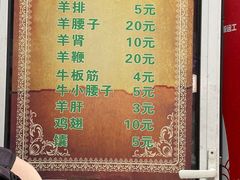 羊排 5元
羊腰子 20元
羊肾 10元
羊鞭 20元
牛板筋 4元
牛小腰子 5元
羊肝 3元
鸡翅 10元
馕 5元